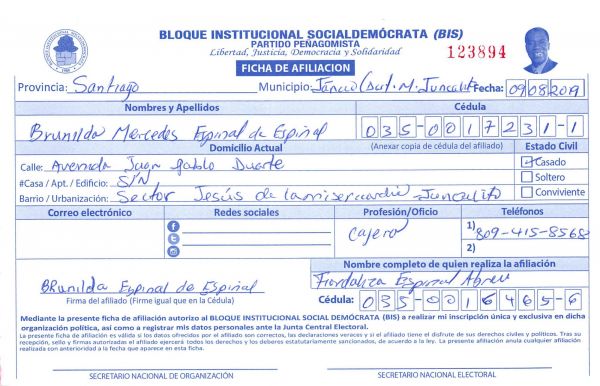 BLOQUE INSTITUCIONAL SOCIALDEMÓCRATA (BIS)
PARTIDO PEÑAGOMISTA
Libertad, Justicia, Democracia y Solidaridad
123894
FICHA DE AFILIACION
Provincia: Santiago Municipio: Jánico (Dist. M. Juncalito Fecha: 09/08/2019
Nombres y Apellidos Cédula
Brunilda Mercedes Espinal de Espinal 035-0017231-1
Domicilio Actual (Anexar copia de cédula del afiliado) Estado Civil
Calle: Avenida Juan Pablo Duarte Casado
#Casa / Apt. / Edificio: S/N Soltero
Barrio / Urbanización: Sector Jesús de la misericordia - Juncalito Conviviente
Correo electrónico Redes sociales Profesión/Oficio Teléfonos
Cajero 1) 809-415-8568
2)
Nombre completo de quien realiza la afiliación
BRunilda Espinal de Espinal Fiordaliza Espinal Abreu
Firma del afiliado (Firme igual que en la Cédula) Cédula: 035-0016465-6
Mediante la presente ficha de afiliación autorizo al BLOQUE INSTITUCIONAL SOCIAL DEMÓCRATA (BIS) a realizar mi inscripción única y exclusiva en dicha
organización política, así como a registrar mis datos personales ante la Junta Central Electoral.
La presente ficha de afiliación es válida si los datos ofrecidos por el afiliado son correctos, las declaraciones veraces y si el afiliado tiene el disfrute de sus derechos civiles y políticos. Tras su
recepción, sello y firmas autorizadas el afiliado ejercerá todos los derechos y los deberes estatutariamente sancionados, de acuerdo a la ley. La presente afiliación anula cualquier afiliación
realizada con anterioridad a la fecha que aparece en esta ficha.
SECRETARIO NACIONAL DE ORGANIZACIÓN SECRETARIO NACIONAL ELECTORAL